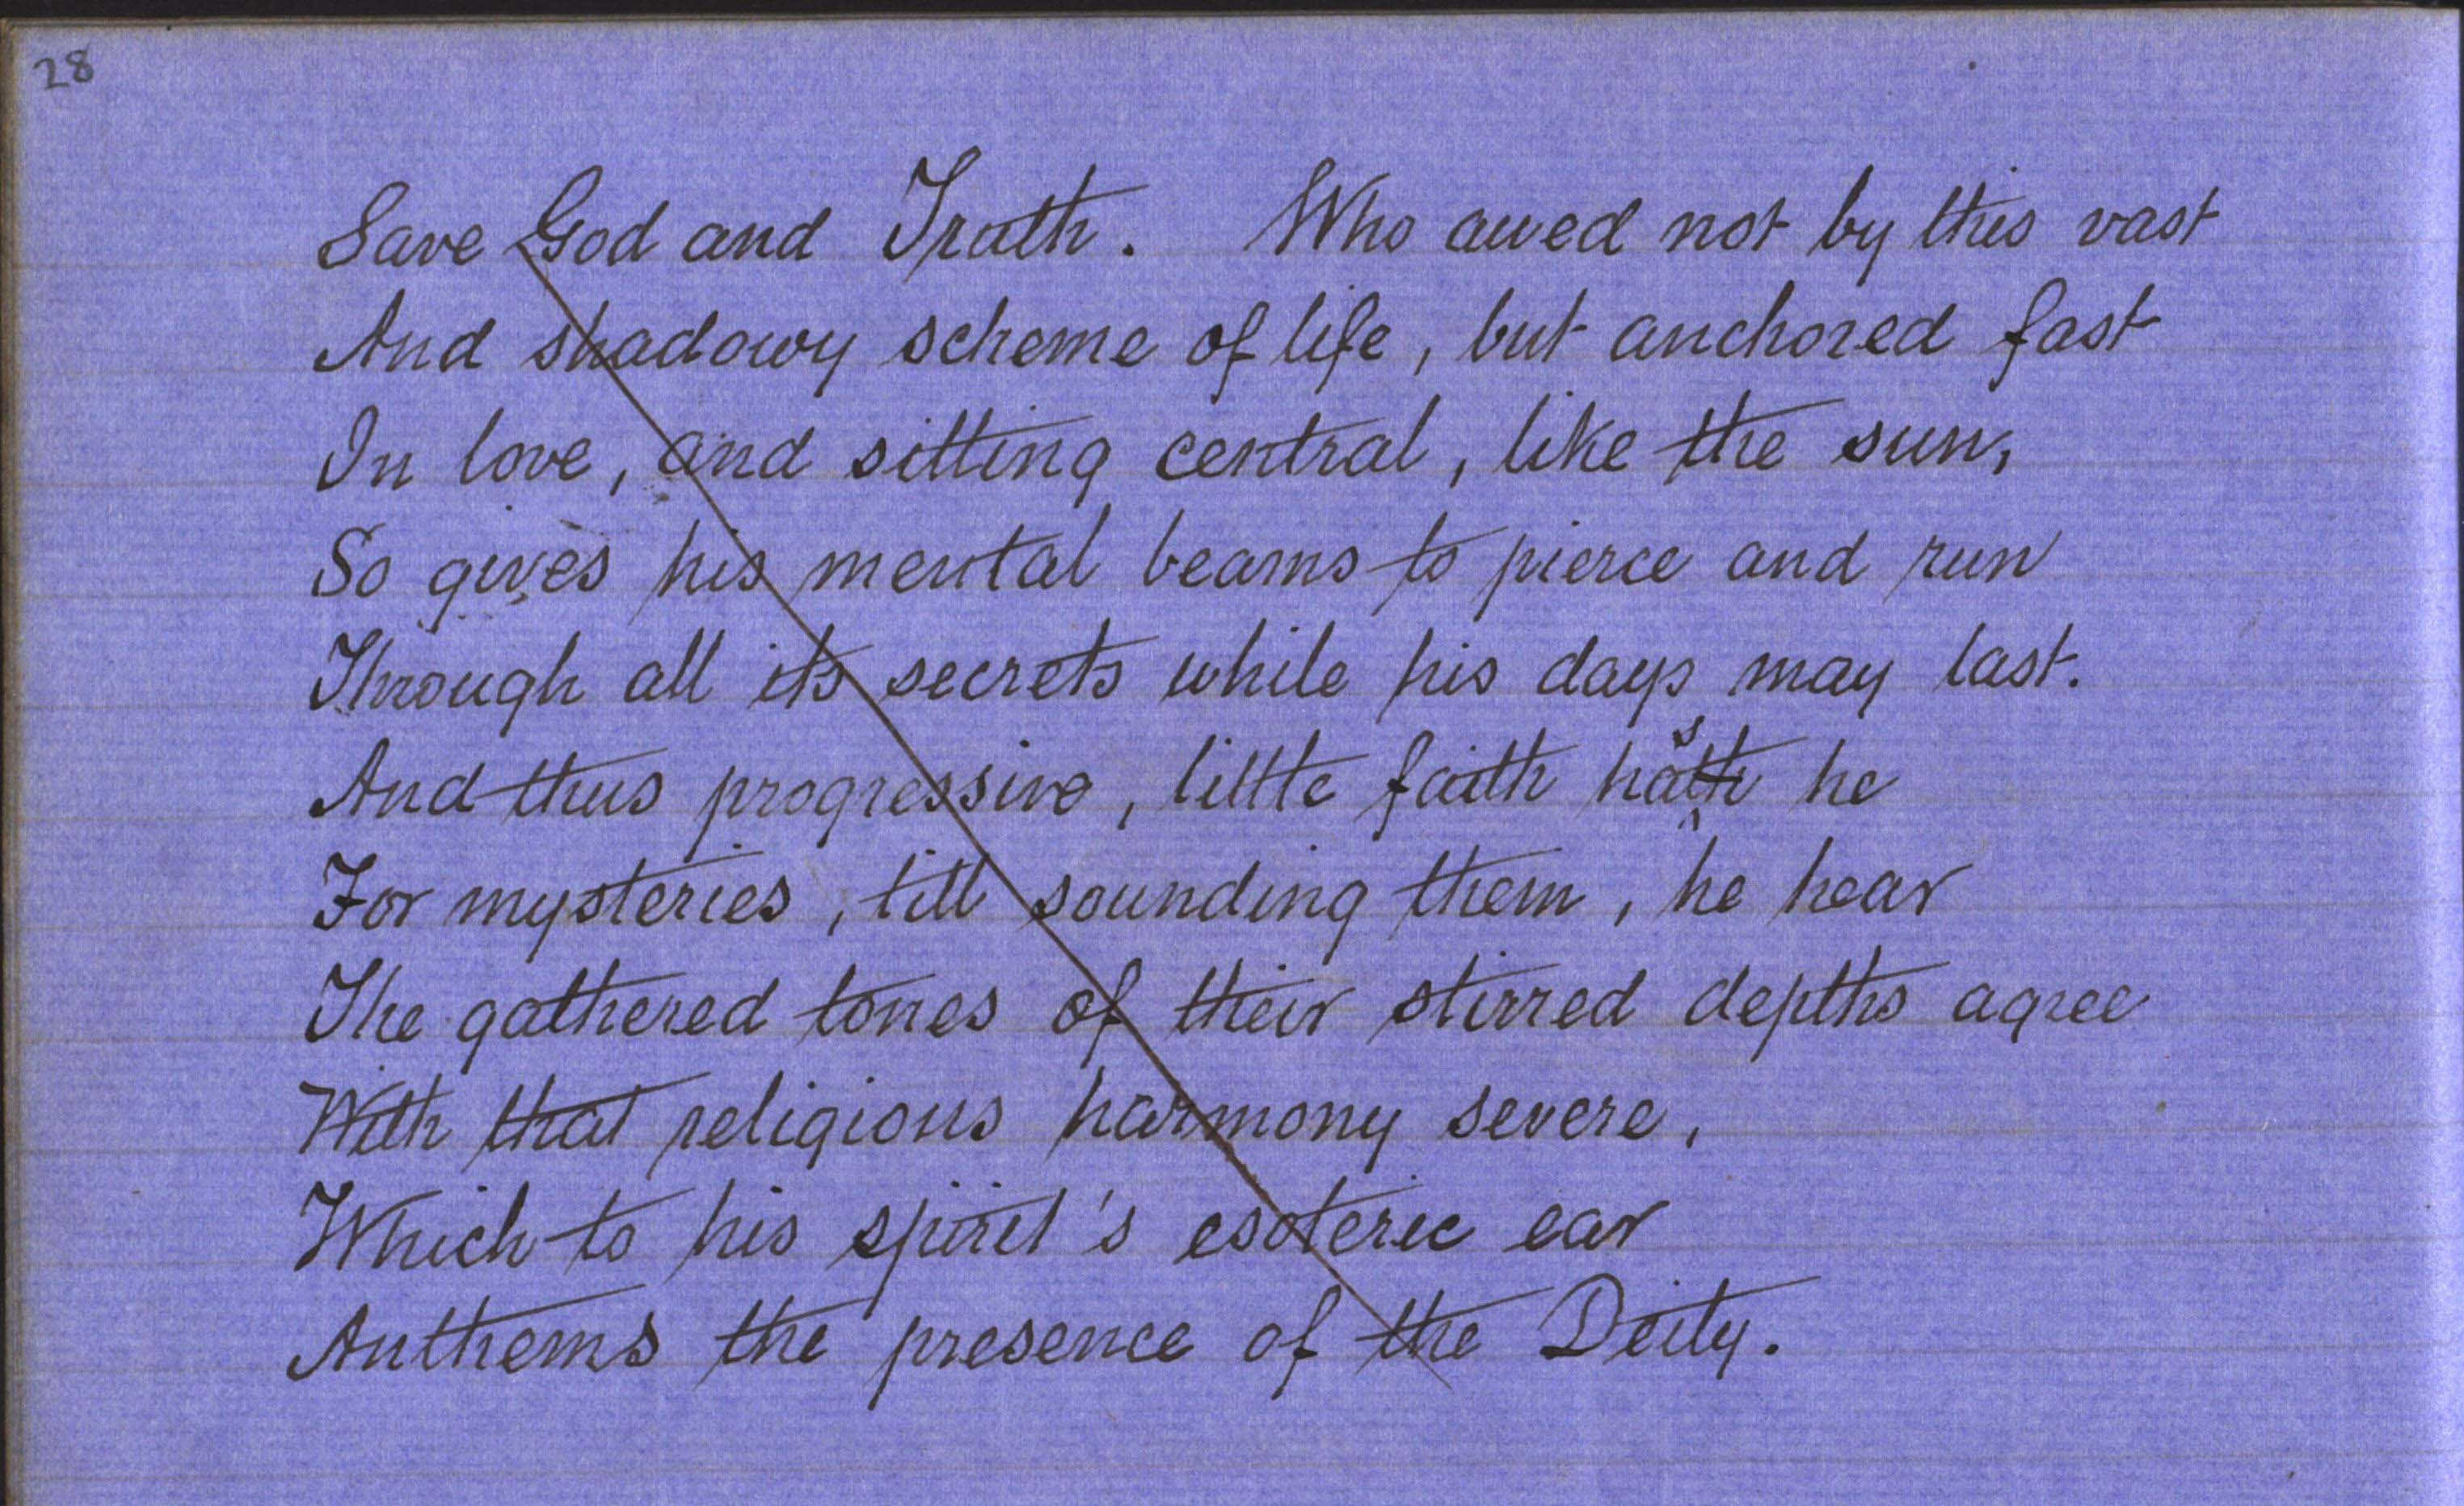 28
Save God and Truth. Who awed not by this vast
And shadowy scheme of life, but anchored fast
In love, and sitting central, like the sun,
So gives his mental beams to pierce and run
Through all its secrets while his days may last.
And thus progressive, little faith has he
For mysteries, till sounding them, he hear
The gathered tones of their stirred depths agree
With that religious harmony severe,
Which to his spirit's esoteric ear
Anthems the presence of the Deity.